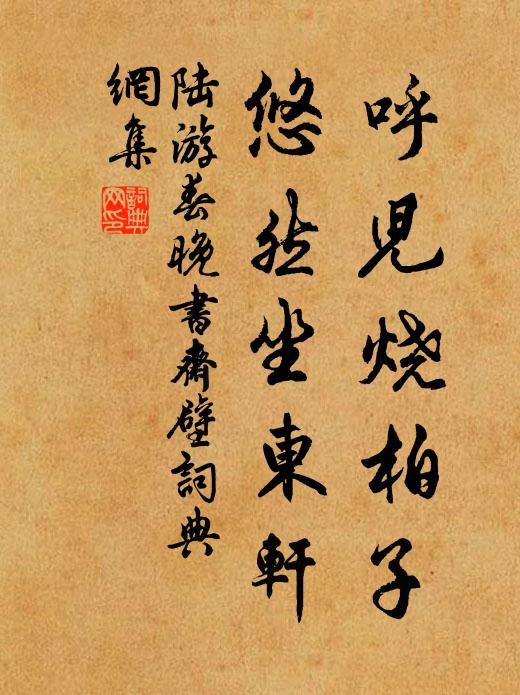 呼児烧柏子
悠然坐東軒
陆游春晚書齋壁詞典
網集
詞典網印